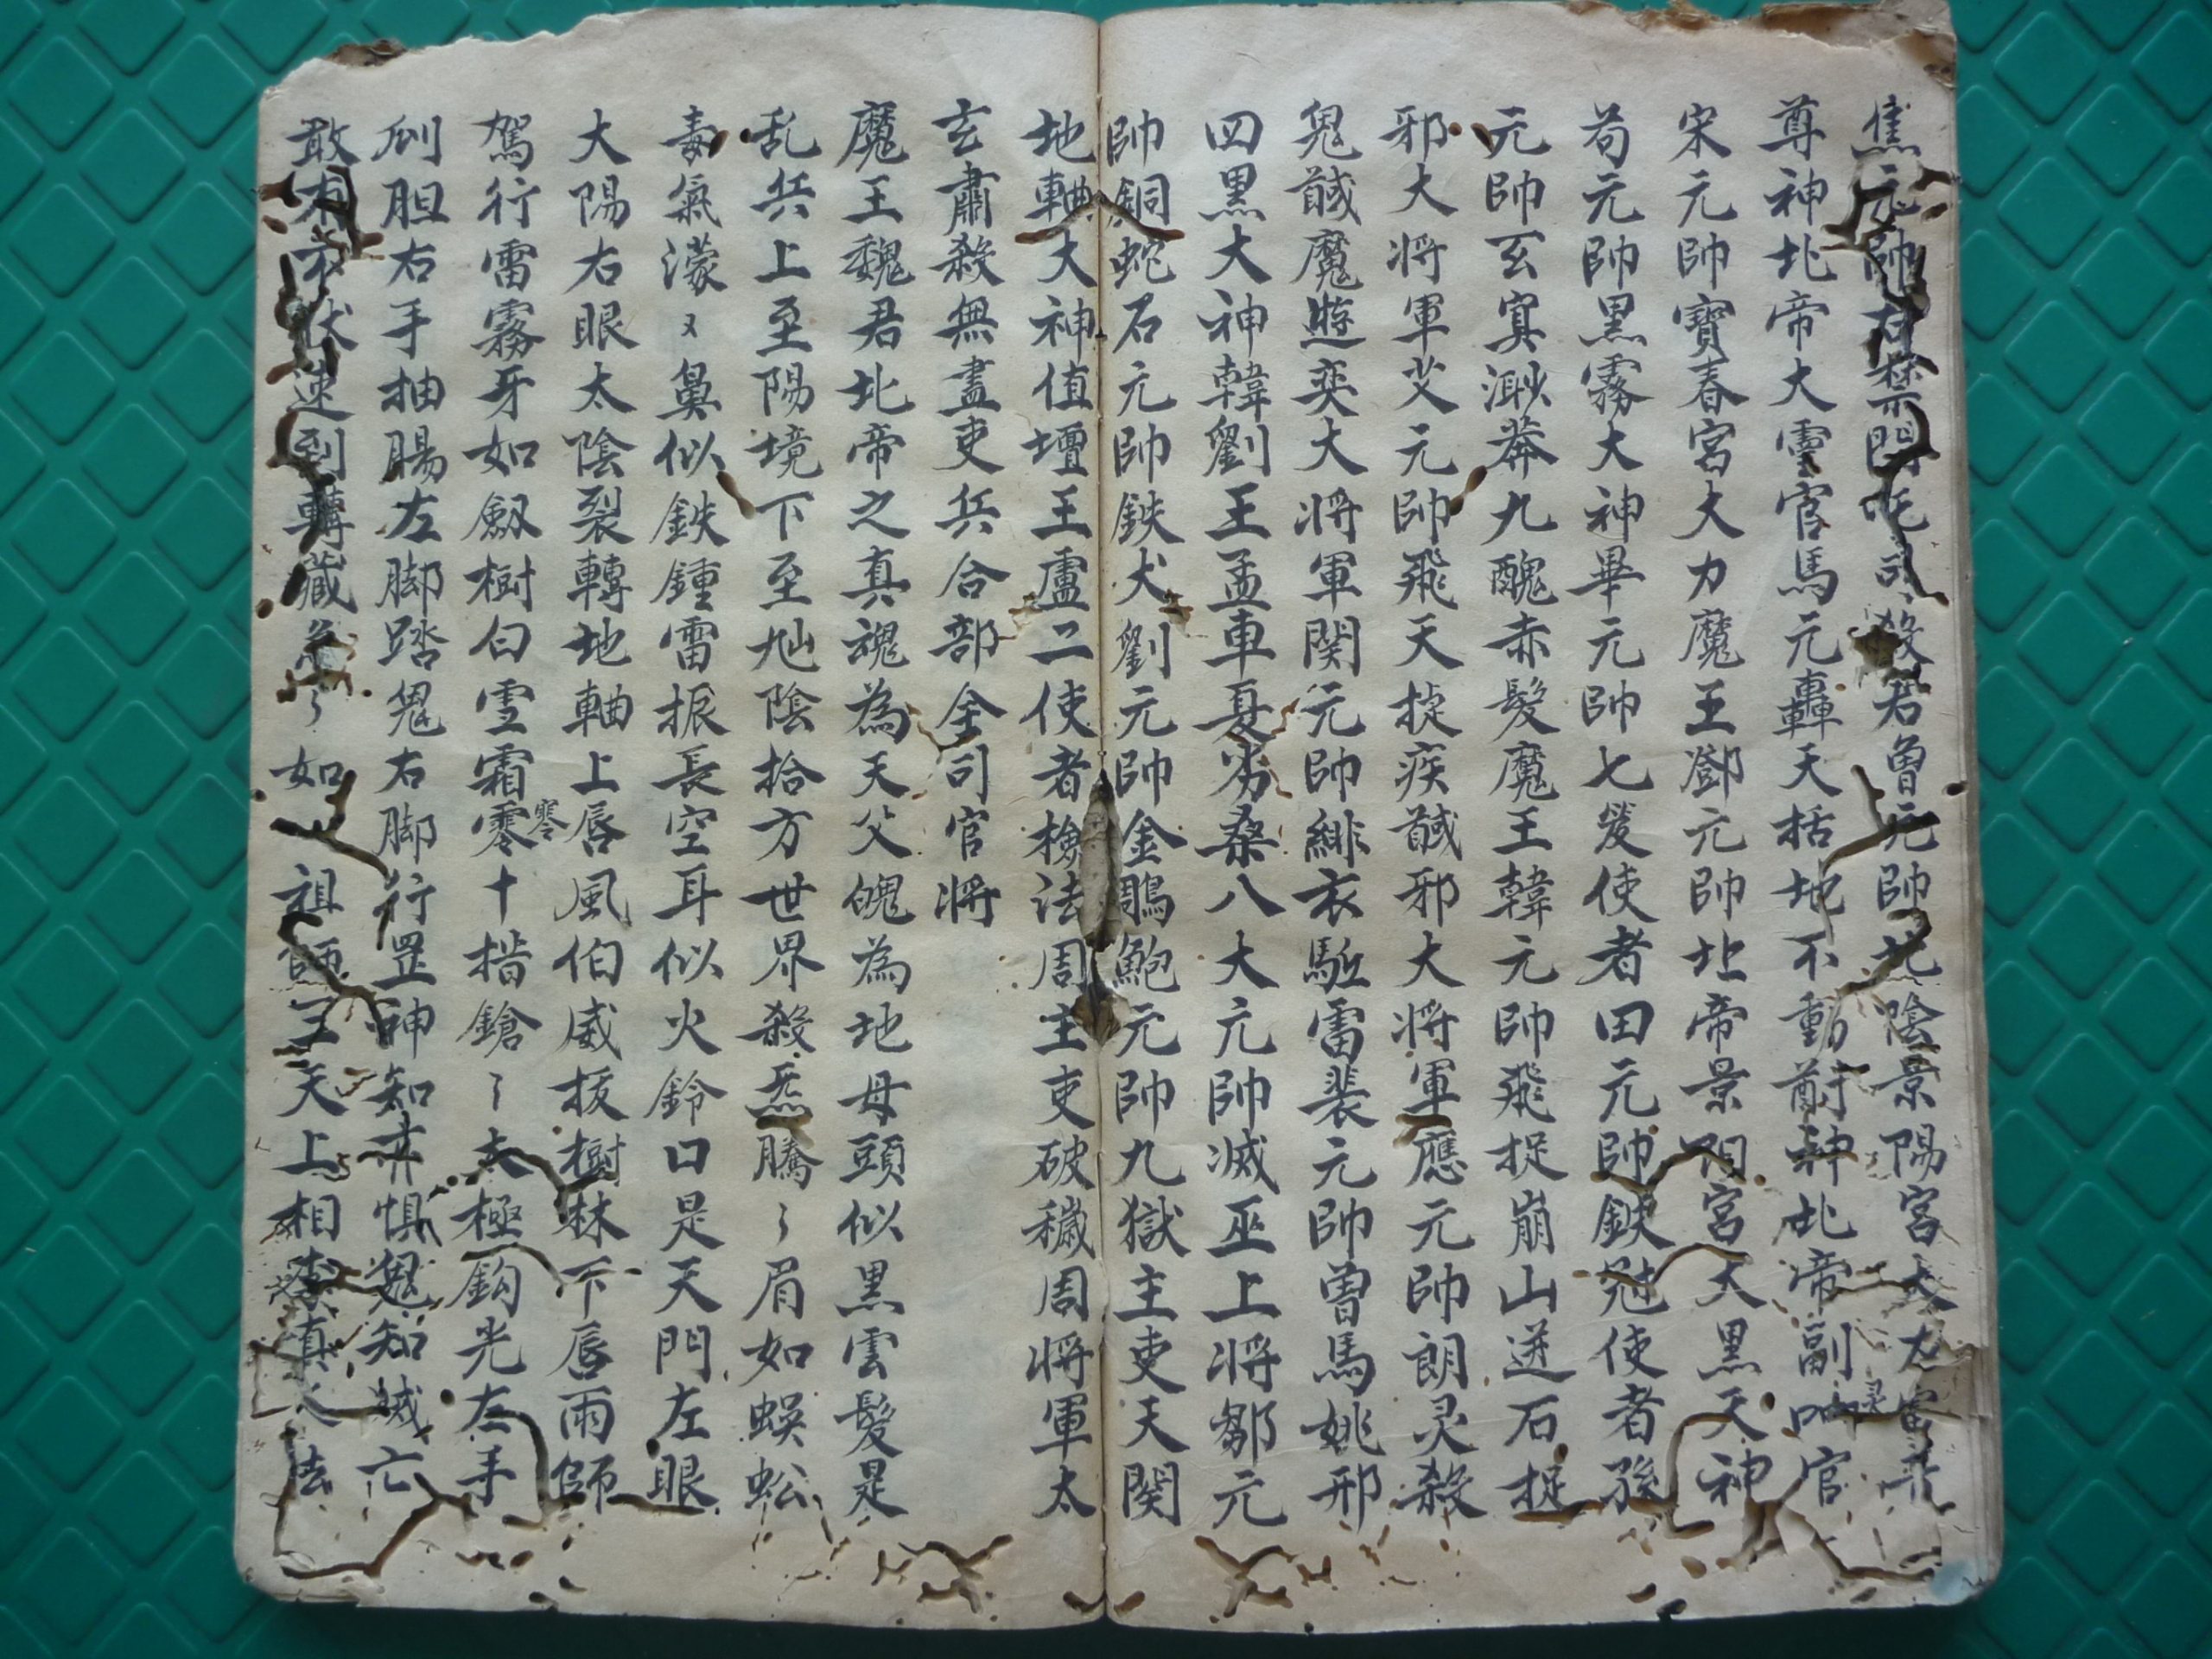 焦元帥右禁関吒司殺君曾元帥北陰景陽宮大力
尊神北帝大雷官馬元轟天括地不動酎神北帝副官
宋元帥寶春宮大力魔王鄧元帥北帝景陽宮大黑天神
苟元帥黒霧大神畢元帥七煞使者田元帥鉄使者孫
元帥玄冥渺莽九醜赤髮魔王韓元帥飛捉崩山迸石捉
邪大将軍艾元帥飛天捉疾馘邪大将軍應元帥朗灵殺
鬼馘魔遊奕大将軍関元帥緋衣駈雷裴元帥曾馬姚邢
四黒大神韓劉王孟車夏劣桑八大元帥滅巫上将鄒元
帥銅蛇石元帥鉄犬劉元帥金鵰鮑元帥九獄主吏天関
地軸大神值壇王盧二使者檢法周主吏破穢周将軍太
玄肅殺無盡吏兵合部全司官将
魔王魏君北帝之真魂為天父魄為地母頭似黒雲髮是
乱兵上至陽境下至地陰拾方世界殺炁騰〻眉如蜈蚣
毒氣濛〻鼻似鉄鍾雷振長空耳似火鈴口是天門左眼
大陽右眼太陰裂轉地軸上唇風伯威拔樹林下唇雨師
駕行雷霧牙如劔樹白雪霜零寒十指鎗〻太極鈎光左手
刎胆右手抽腸左脚踏鬼右脚行罡神知惧鬼知滅亡
敢有不伏速到轉藏急〻如 祖師三天上相真人法